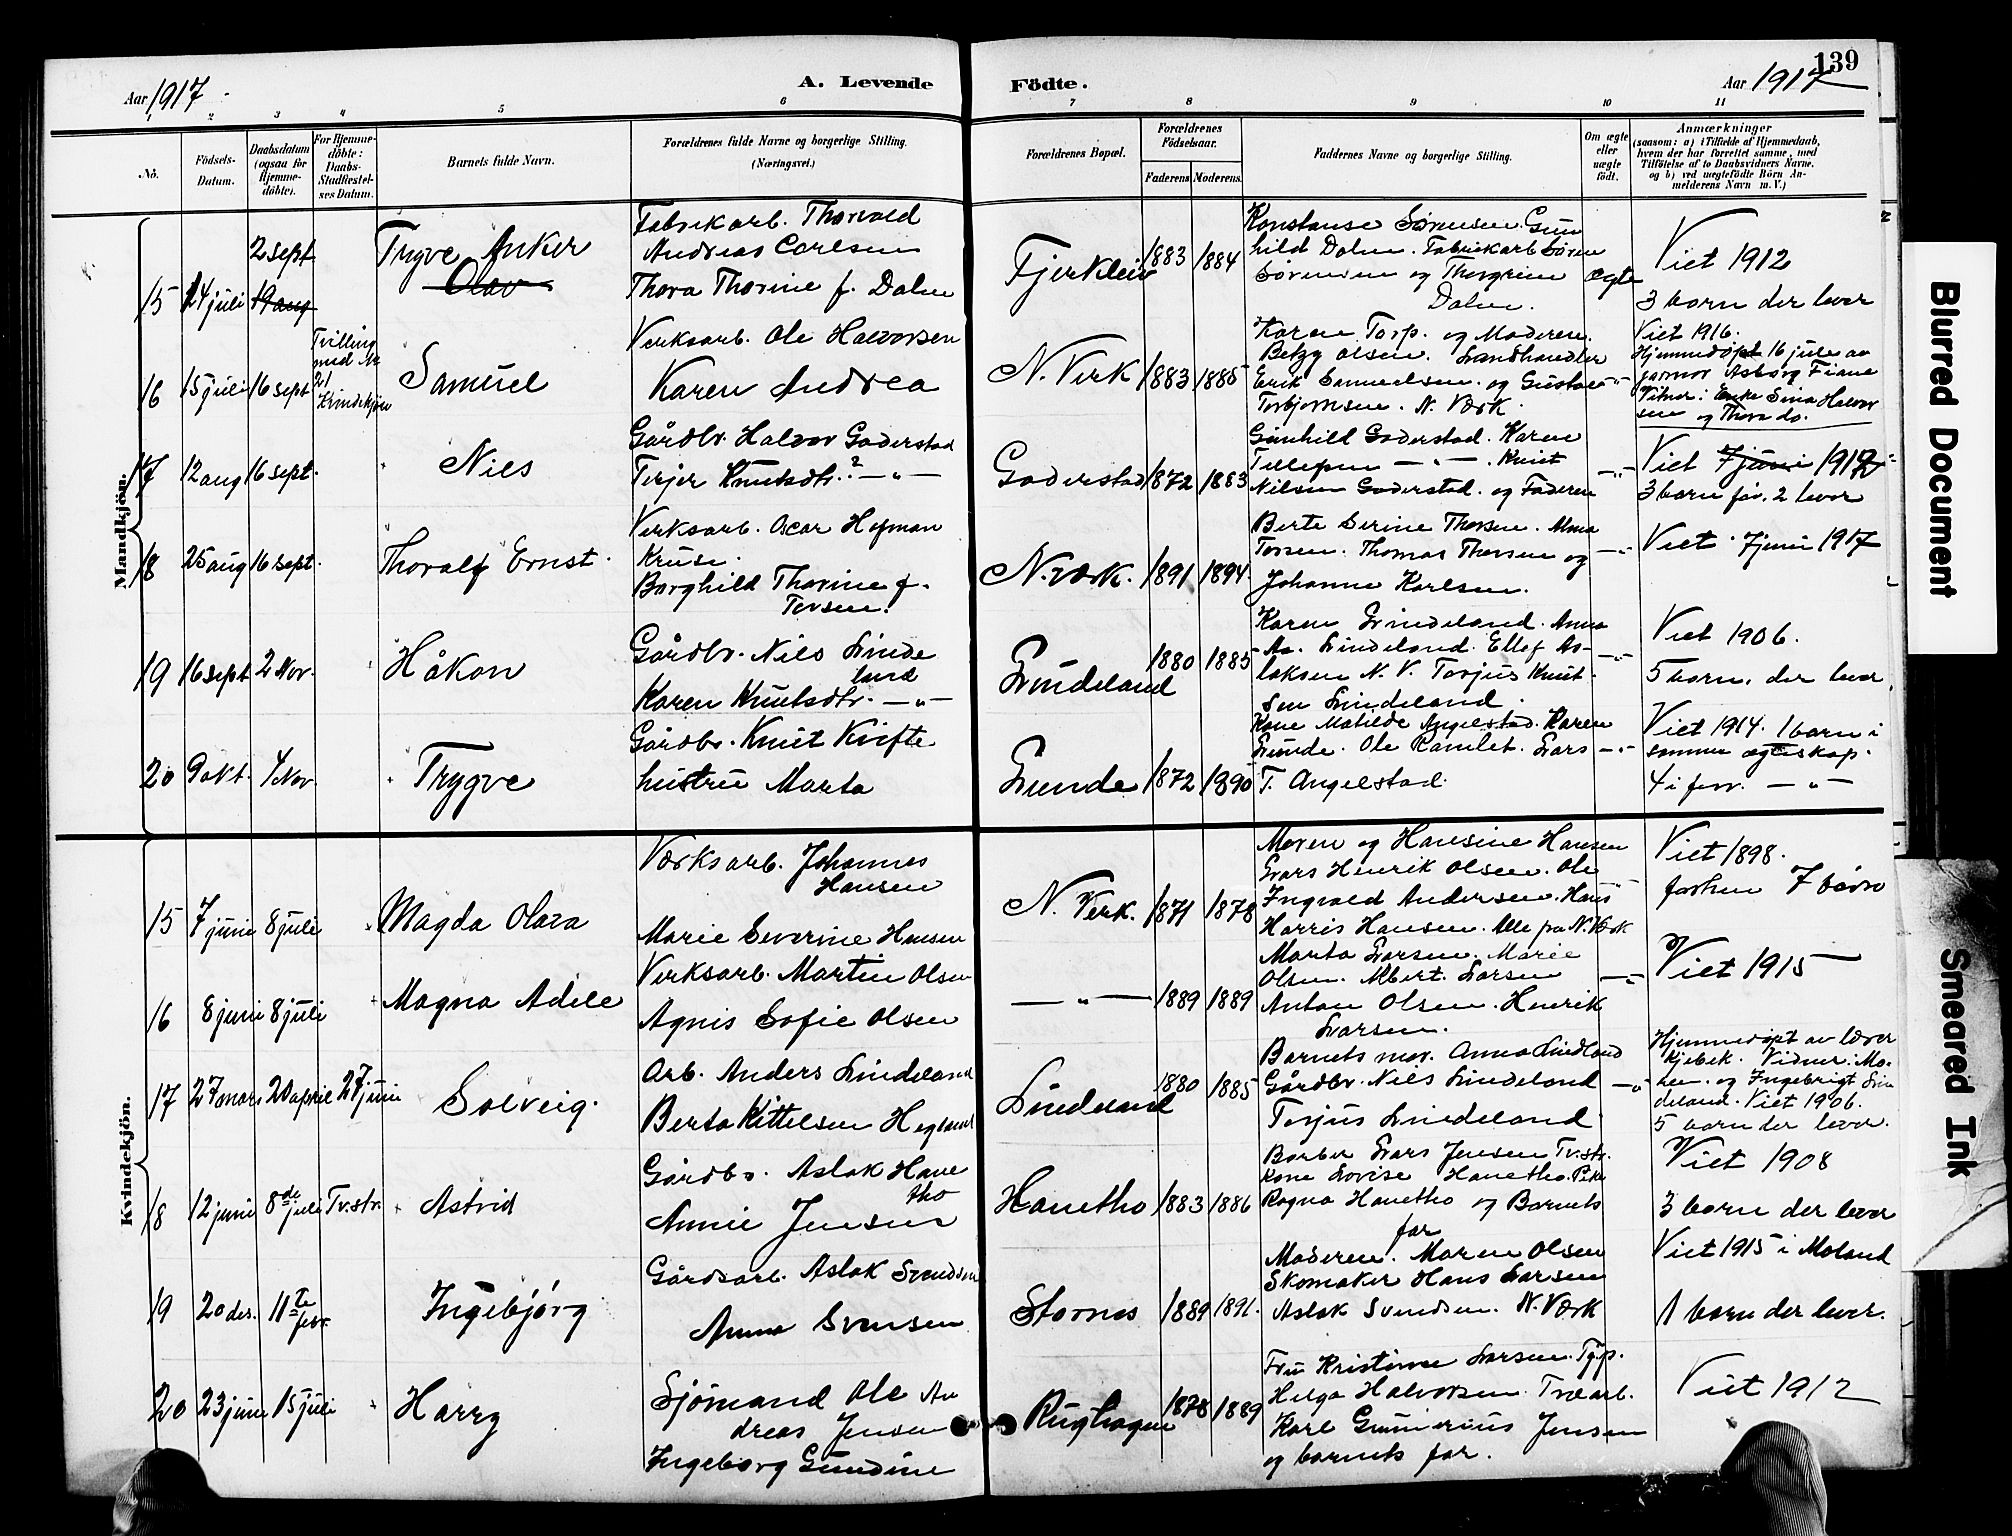 Aar 1917.
A. Levende
Födte.
Aar 1917
139
1 2 3 4 5 6 7 8 9 10 11
No.
Födsels-Datum.
Daabsdatum (ogsaa for Hjemme-döbte).
For Hjemme-döbte: Daabs-Stadfæstel-ses Datum.
Barnets fulde Navn.
Forældrenes fulde Navne og borgerlige Stilling.
(Næringsvei.)
Forældrenes Bopæl.
Forældrenes Födselsaar.
Faderens
Moderens.
Faddernes Navne og borgerlige Stilling.
Om ægte eller uægte födt.
Anmærkninger
(saasom: a) i Tilfælde af Hjemmedaab,
hvem der har forrettet samme, med
Tilföielse af to Daabsvidners Navne,
og b) ved uægtefödte Börn An-
melderens Navn m. V.)
Mandkjön.
15 24 juli 2 sept 19 aug
Trygve Anker
Olav
Fabrikarb. Thorvald
Andreas Carlsen
Thora Thorine f. Dalen
Fjerkleiv 1883 1884
Konstanse Sørensen. Gun
hild Dalen. Fabrikarb Søren
Sørensen og Thorgrim
Dalen.
Ægte
Viet 1912
3 barn der lever
16 15 juli 16 sept
Tvilling
med No
21
Kvindekjøn
Samuel
Verksarb. Ole Halvorsen
Karen Andrea
N. Verk 1883 1885
Karen Torp. og Moderen.
Betzy Olsen. Landhandler
Erik Samuelsen. og Gustav
Torbjørnsen. N. Værk.
Viet 1916.
Hjemmedøpt 16 juli av
farmor Asborg Fiane
Vitner: Enke Sina Halvor
sen og Thora do.
17 12 aug 16 sept.
Niels
Gårdbr. Halvor Goderstad
Terjer Knutsdtr.? — „ —
Goderstad 1872 1883
Gunhild Goderstad. Karen
Tellefsen — „ — . Knut
Nilsen Goderstad. og Faderen
— „ —
Viet 7 juni 1912
3 barn før. 2 lever
18 25 aug 16 sept.
Thoralf Ernst.
Verksarb. Oscar Hofman
Kruse.
Borghild Thorine f.
Torsen.
N. Værk. 1891 1894
Berte Serine Thorsen. Alma
Torsen. Thomas Thorsen og
Johanne Karlsen.
— „ —
Viet. 7 juni 1917
19 16 sept 2 Nov.
Håkon
Gårdbr. Nils Linde
land
Karen Knutsdtr. — „ —
Lindeland 1880 1885
Karen Lindeland. Anna
As. Lindeland. Ellef As-
laksen N. V. Torjus Knut-
sen Lindeland.
— „ —
Viet 1906.
5 barn. der lever
20 9 okt. 4 Nov.
Trygve
Gårdbr. Knut Kvifte
hustru Marta
Lunde 1872 1890
Kone Matilde Angelstad. Karen
Lunde. Ole Ramlet. Lars
T. Angelstad.
— „ —
Viet 1914. 1 barn i
samme ægteskap.
4 i forr. — „ —
Kvindekjön.
15 7 juni 8 juli
Magda Olava
Værksarb. Johannes
Hansen
Marie Severine Hansen
N. Verk. 1871 1878
Moren og Hansine Hansen
Lars Henrik Olsen. Ole
Ingvald Andersen. Hans
Harris Hansen. Alle fra N. Værk
Viet 1898.
forhen 7 børn
16 8 juni 8 juli
Magna Adele
Verksarb. Martin Olsen
Agnis Sofie Olsen
— „ — 1889 1889
Marta Larsen. Marie
Olsen. Albert. Larsen
Anton Olsen. Henrik
Larsen.
— „ —
Viet 1915
17 27 mars 20 april 27 juni
Solveig.
Arb. Anders Lindeland
Berta Kittelsen Hegland
Lindeland 1880 1885
Barnets mor. Anna Lindland
Gårdbr. Nils Lindeland
Torjus Lindeland
— „ —
Hjemmedøpt av lærer
Kjebek. Vidner: Ma-
ren. og Ingebrigt Lin
deland. Viet 1906.
5 barn der lever.
18 12 juni 8de juli Tv.str.
Astrid
Gårdbr. Aslak Hane
tho
Annie Jensen
Hanetho 1883 1886
Barber Lars Jensen Tv.str.
Kone Lovise Hanetho. Pike
Ragna Hanetho og Barnets
far
Viet 1908
3 barn der lever
19 20 des. 11te febr.
Ingebjørg
Gårdsarb. Aslak Svendsen
Anna Svensen
Stornes 1889 1891.
Moderen. Maren Olsen
Skomaker Hans Larsen
Aslak Svendsen. N. Værk
Viet 1915 i Moland
1 barn der lever.
20 23 juni 15 juli
Harry
Sjömand Ole An
dreas Jensen
Ingeborg Gundine
Rughagen 1878 1889
Fru Kristinne Larsen. Typ.
Helga Halvorsen. Træarb.
Karl Gunnerius Jensen
og barnets far.
Viet 1912
Blurred Document
Smeared Ink